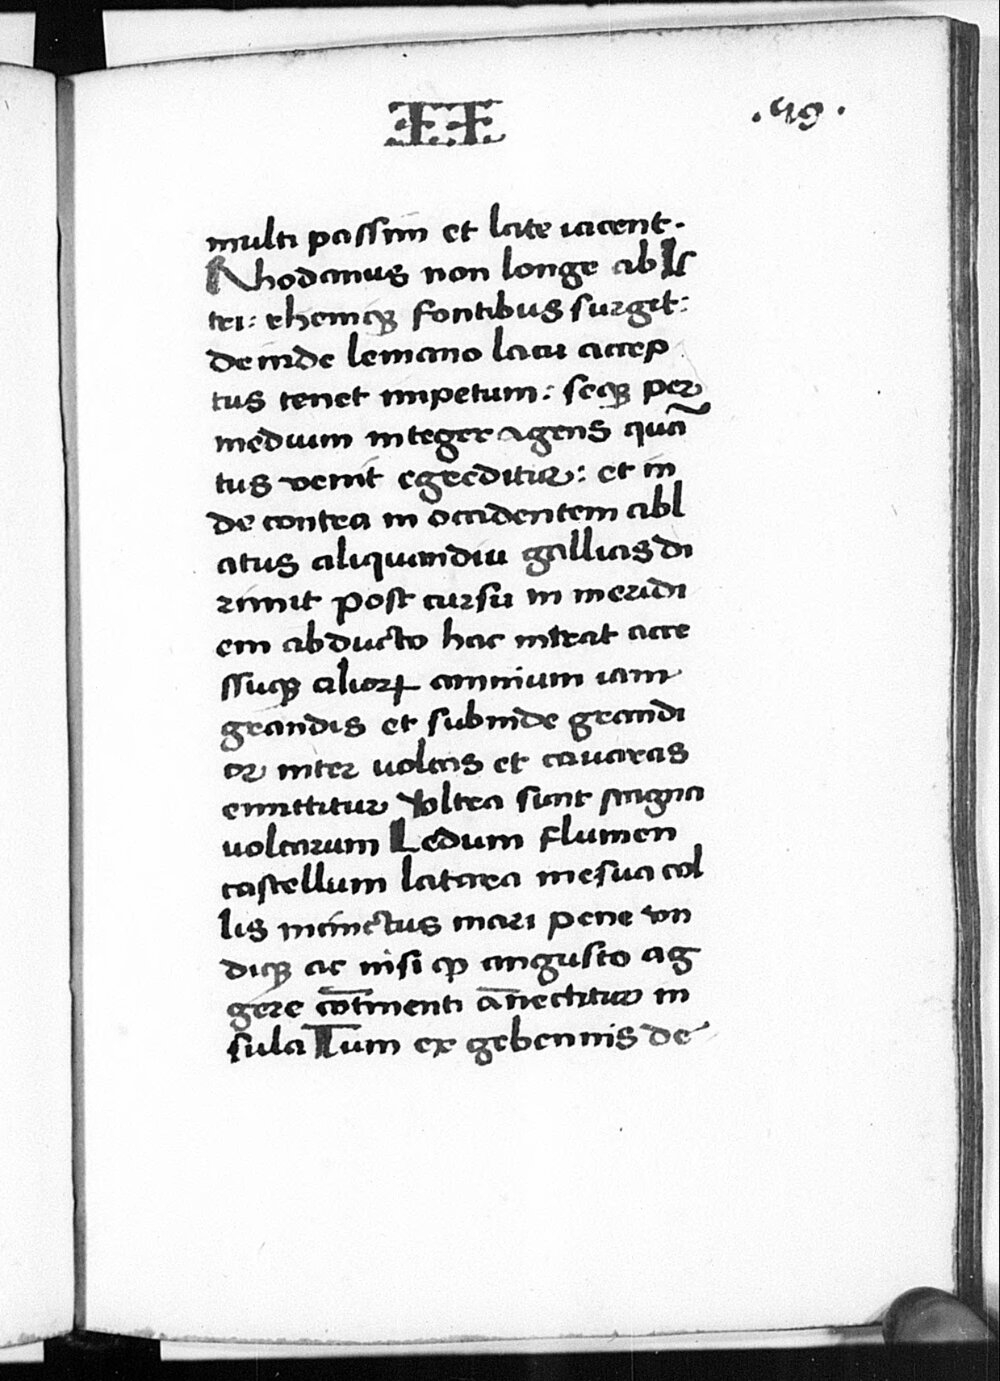 II
.49.
multi passim et late iacent.
Rhodanus non longe ab Is
tri: rheniqꝫ fontibus surgit:
deinde lemano lacu accep
tus tenet impetum: seqꝫ per
medium integer agens quã
tus venit egreditur: et in
de contra in occidentem abl
atus aliquandiu gallias di
rimit post cursu in meridi
em abducto hac intrat acce
ssuqꝫ alioꝝ amnium iam
grandis et subinde grandi
or inter volcas et cavaras
emittitur Vltra sunt stagna
volcarum Ledum flumen
castellum latara mesua col
lis incinctus mari pene vn
diqꝫ ac nisi ꝙ angusto ag
gere cōtinenti ānectitur in
sula Tum ex gebennis de